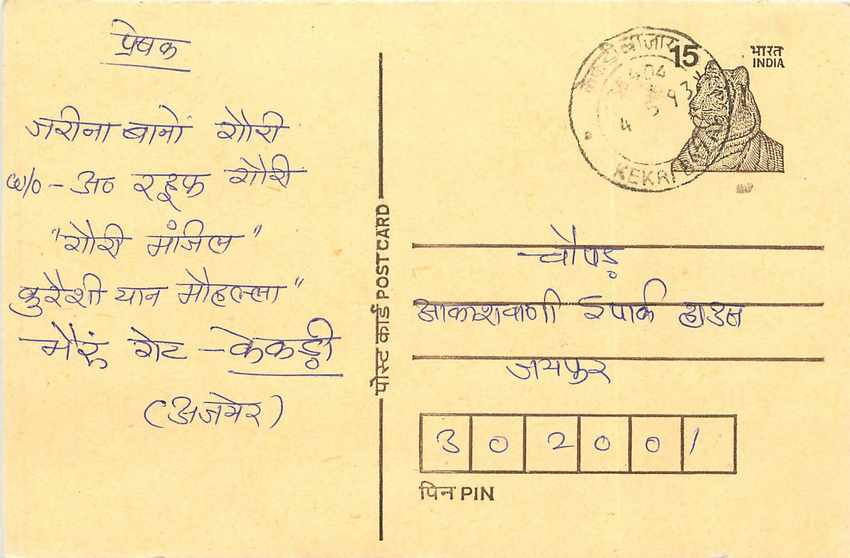 प्रेषक
जरीना बानों गौरी
w/o - अ० रहूफ गौरी
"गौरी मंजिल"
कुरैशी यान मौहल्ला"
भैरुं गेट - केकड़ी
(अजमेर)
पोस्ट कार्ड POST CARD
15
भारत
INDIA
4 5 93
KEKRI
चौपड़
आकाशवाणी पार्क हाउस
जयपुर
302001
पिन PIN